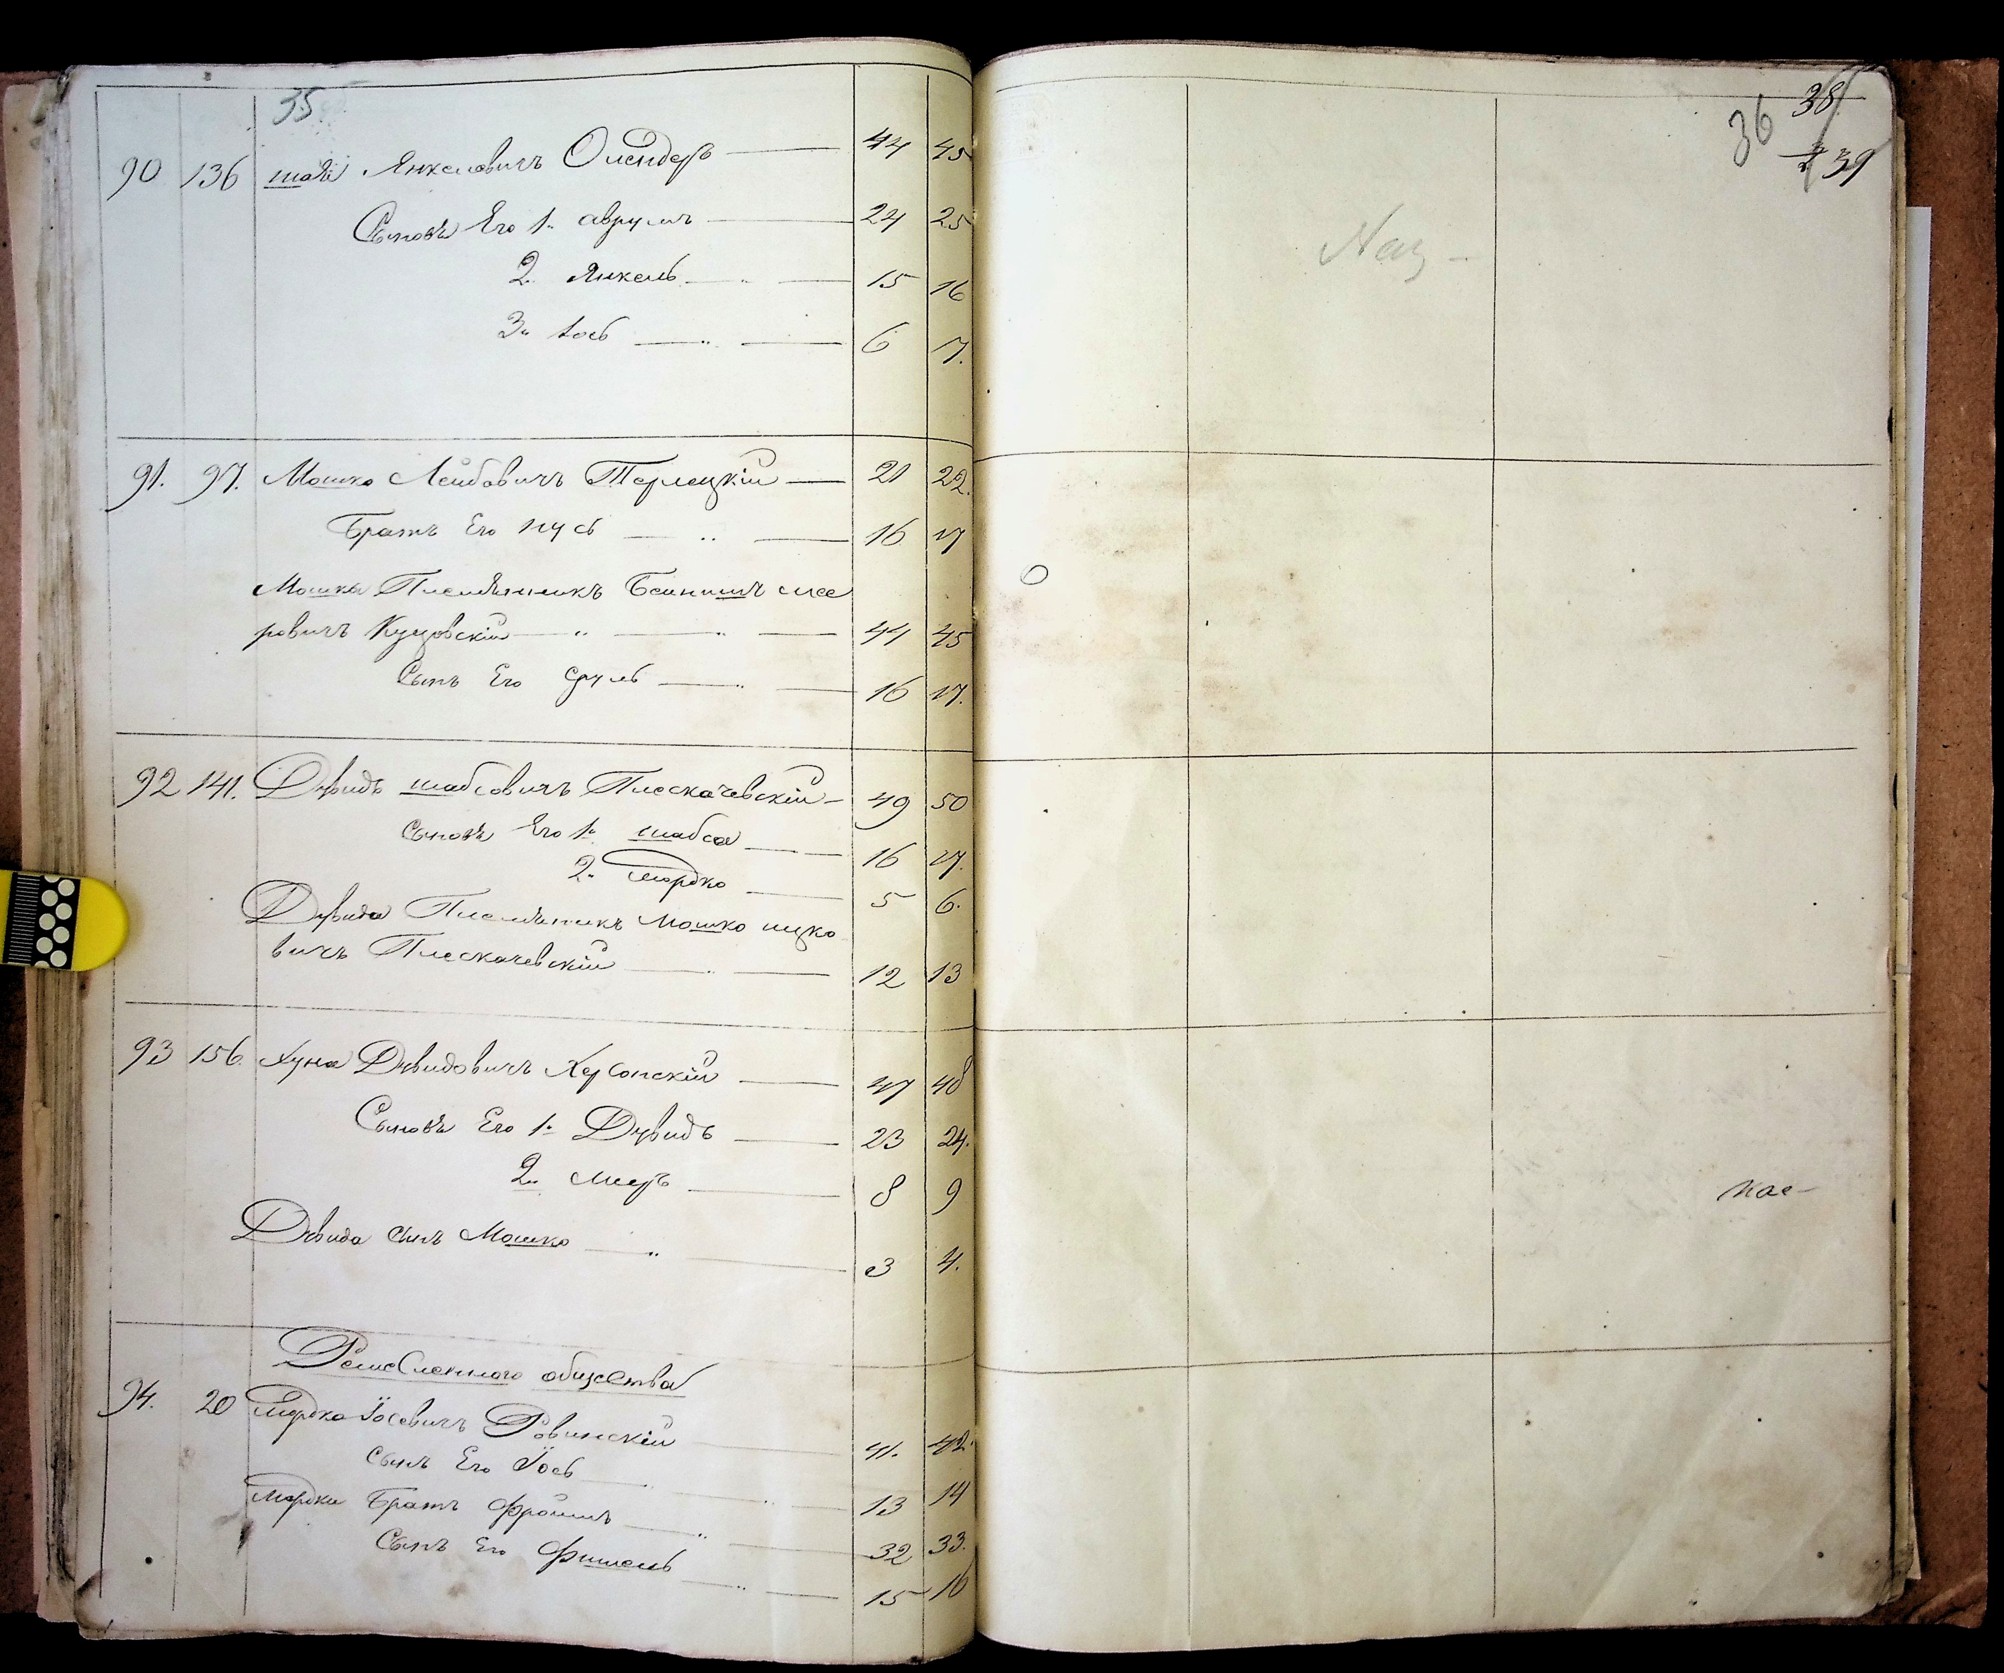 35
90 136 шаѣ Янкелевичъ Олендеръ 44 45
Сыновя Его 1. аврумъ 24 25
2. Янкель 15 16
3. Іось 6 7.
91. 97. Мошко Лейбовичъ Терлецкій 21 22.
Братъ Его нусь 16 17
Мошка Племянникъ Беинишъ мее
ровичъ Куцовскій 44 45
Сынъ Его сруль 16 17.
92 141. Дувидъ шабсовичъ Плескачевскій 49 50
Сыновя Его 1. шабса 16 17.
2. мордко 5 6.
Дувида Племянникъ Мошко ицко
вичъ Плескачевскій 12 13
93 156. Хуна Дувидовичъ Херсонскій 47 48
Сыновя Его 1. Дувидъ 23 24.
2. мееръ 8 9
Дувида сынъ Мошко 3 4.
Ремесленного общества
94. 20 мордко Іосевичъ Ровинскій 41. 42.
Сынъ Его Іось 13 14
мордки Братъ Фроимъ 32 33.
Сынъ Его Фишель 15 16
36 38
39